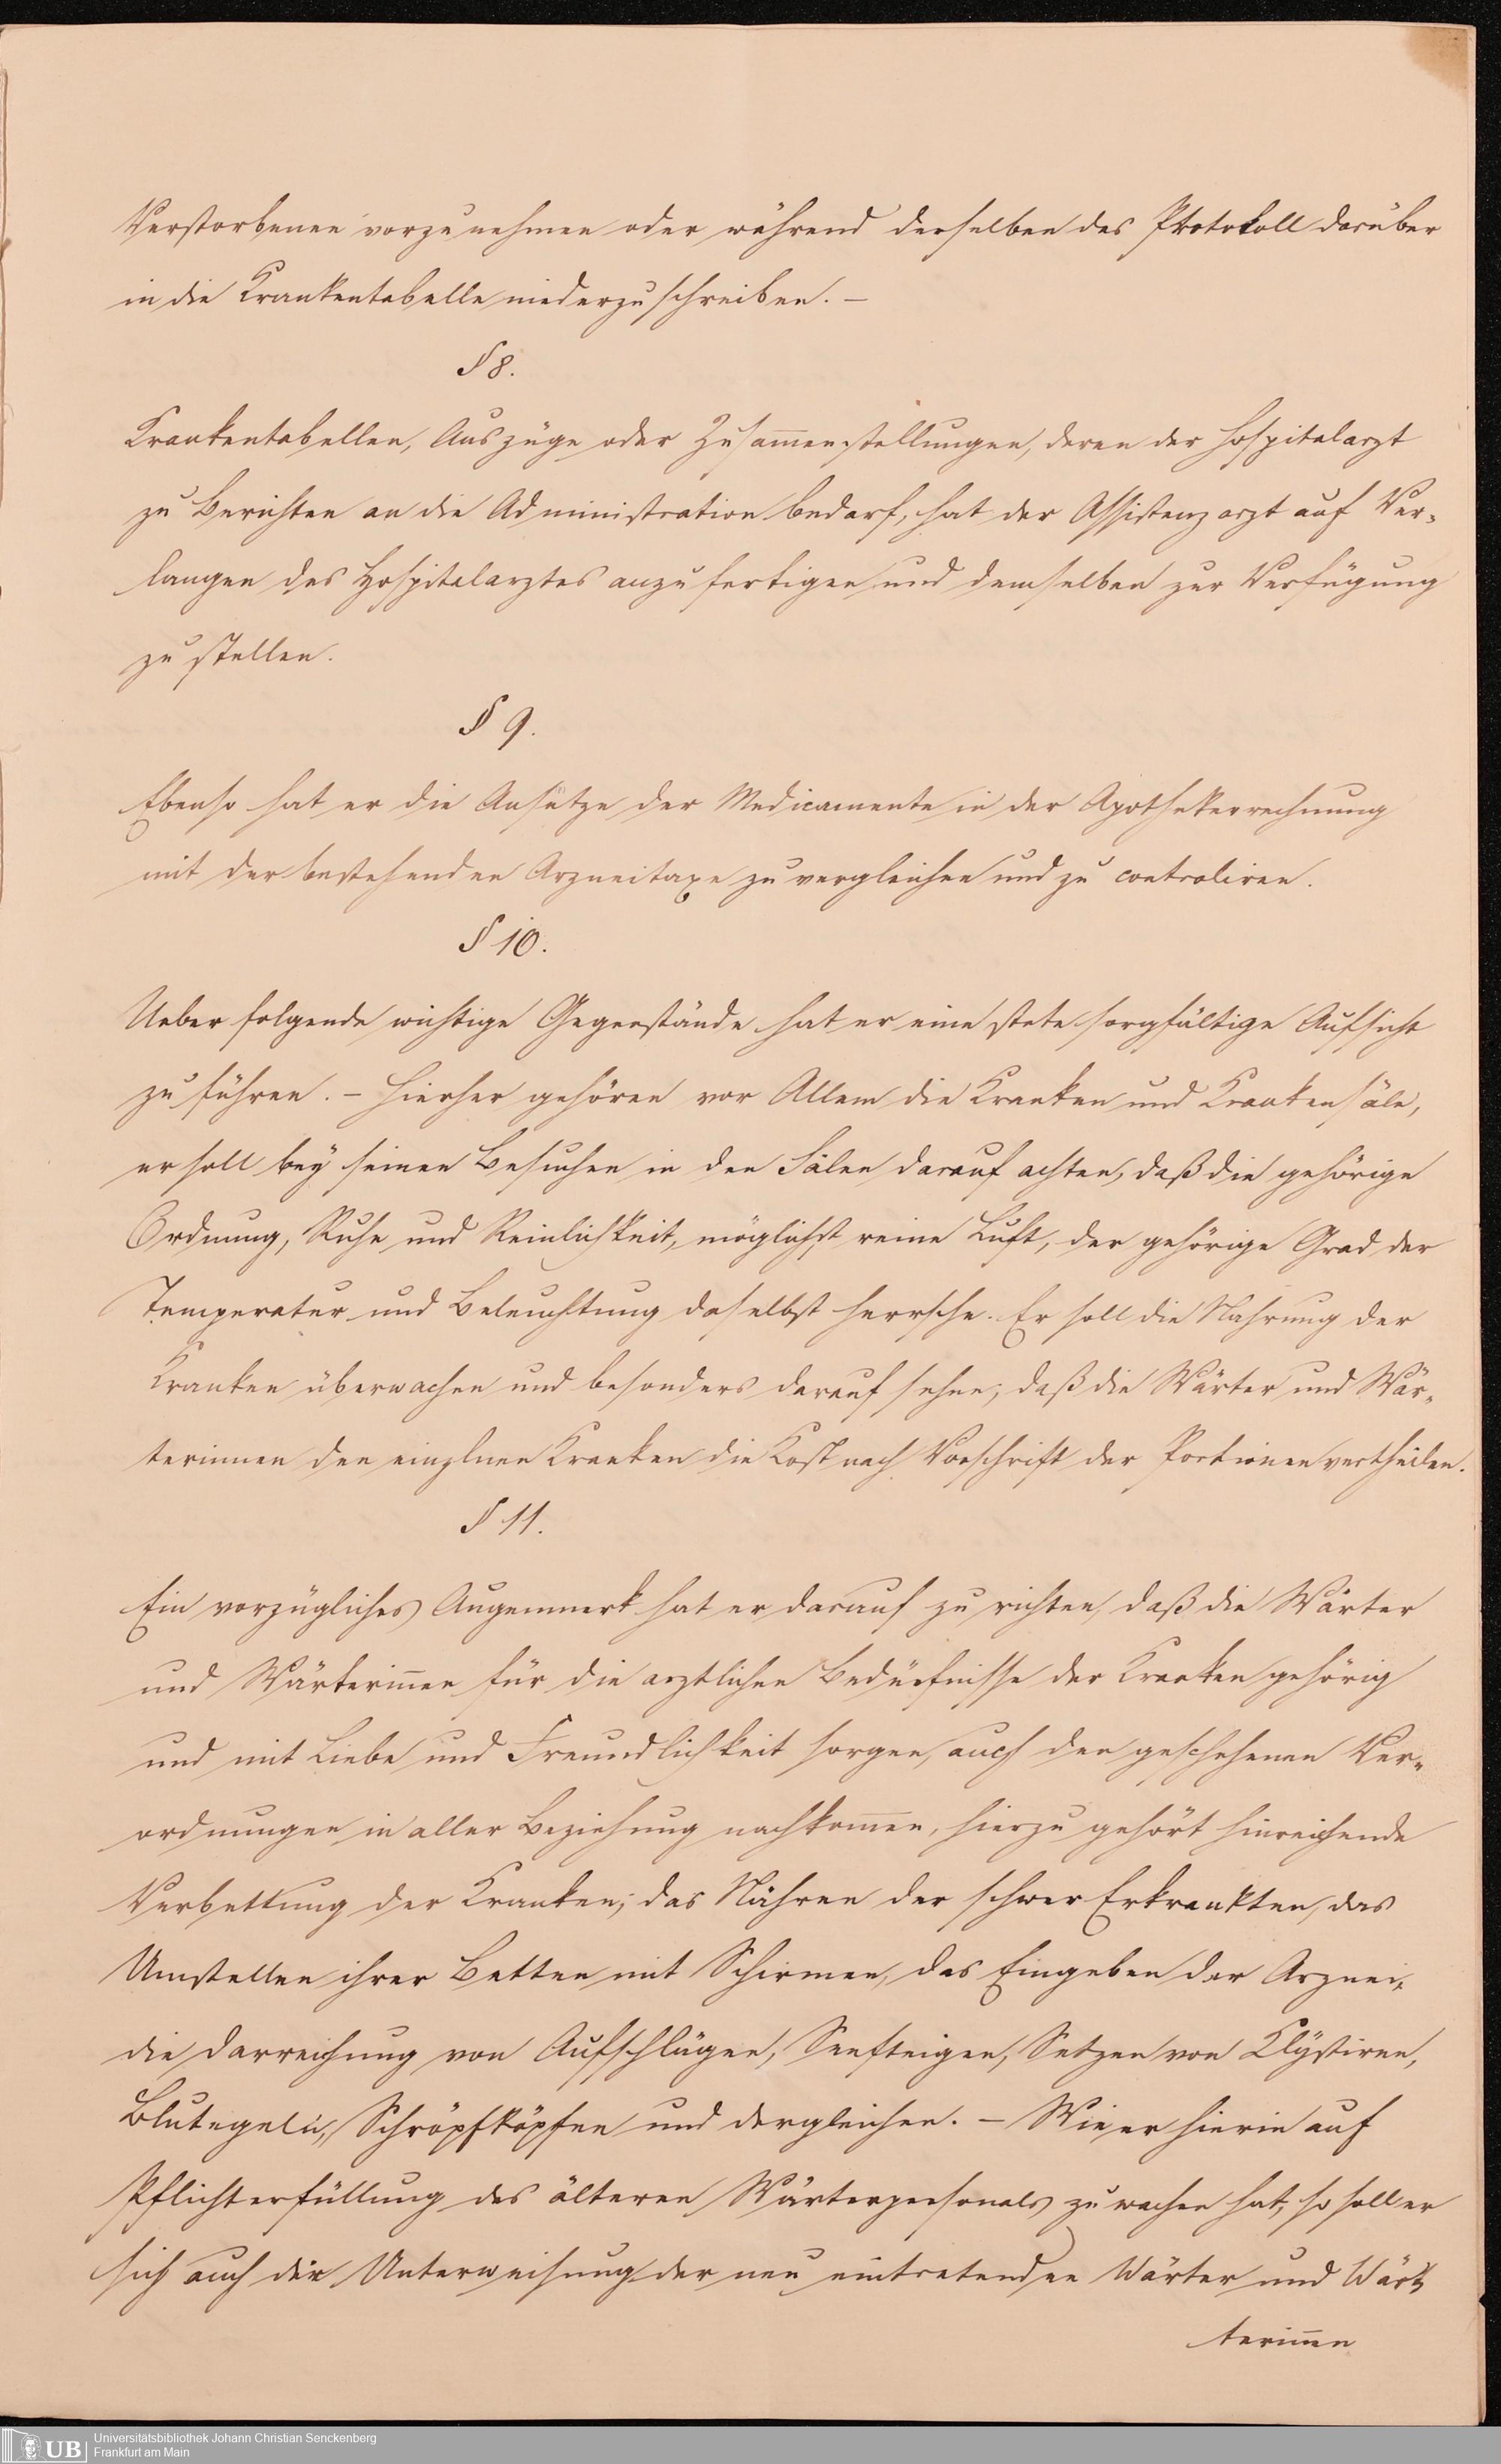 Verstorbenen vorzunehmen oder während derselben das Protokoll darüber
in die Krankentabelle niederzuschreiben. –
§ 8.
Krankentabellen, Auszüge oder Zusam̅enstellungen, deren der Hospitalarzt
zu Berichten an die Administration bedarf, hat der Assistenzarzt auf Ver-
langen des Hospitalarztes anzufertigen und demselben zur Verfügung
zu stellen.
§ 9.
Ebenso hat er die Ansätze der Medicamente in der Apothekerrechnung
mit der bestehenden Arzneitaxe zu vergleichen und zu controliren.
§ 10.
Ueber folgende wichtige Gegenstände hat er eine stete sorgfältige Aufsicht
zu führen. – Hierher gehören vor Allem die Kranken und Krankensäle,
er soll bey seinen Besuchen in den Sälen darauf achten, daß die gehörige
Ordnung, Ruhe und Reinlichkeit, möglichst reine Luft, der gehörige Grad der
Temperatur und Beleuchtung daselbst herrsche. Er soll die Nahrung der
Kranken überwachen und besonders darauf sehen, daß die Wärter und Wär-
terinnen den einzlnen Kranken die Kost nach Vorschrift der Portionen vertheilen.
§ 11.
Ein vorzügliches Augenmerk hat er darauf zu richten, daß die Wärter
und Wärterin̅en für die arztlichen Bedürfnisse der Kranken gehörig
und mit Liebe und Freundlichkeit sorgen, auch den geschehenen Ver-
ordnungen in aller Beziehung nachkom̅en, hierzu gehört hinreichende
Verbettung der Kranken, das Nähren der schwer Erkrankten, das
Umstellen ihrer Betten mit Schirmen, das Eingeben der Arznei,
die Darreichung von Aufschlägen, Senfteigen, Setzen von Clystiren,
Blutegeln, Schröpfköpfen und dergleichen. – Wie er hierin auf
Pflichterfüllung des älteren Wärterpersonals zu wachen hat, so soll er
sich auch der Unterweisung der neu eintretenden Wärter und Wär-
terin̅en
UB
Universitätsbibliothek Johann Christian Senckenberg
Frankfurt am Main